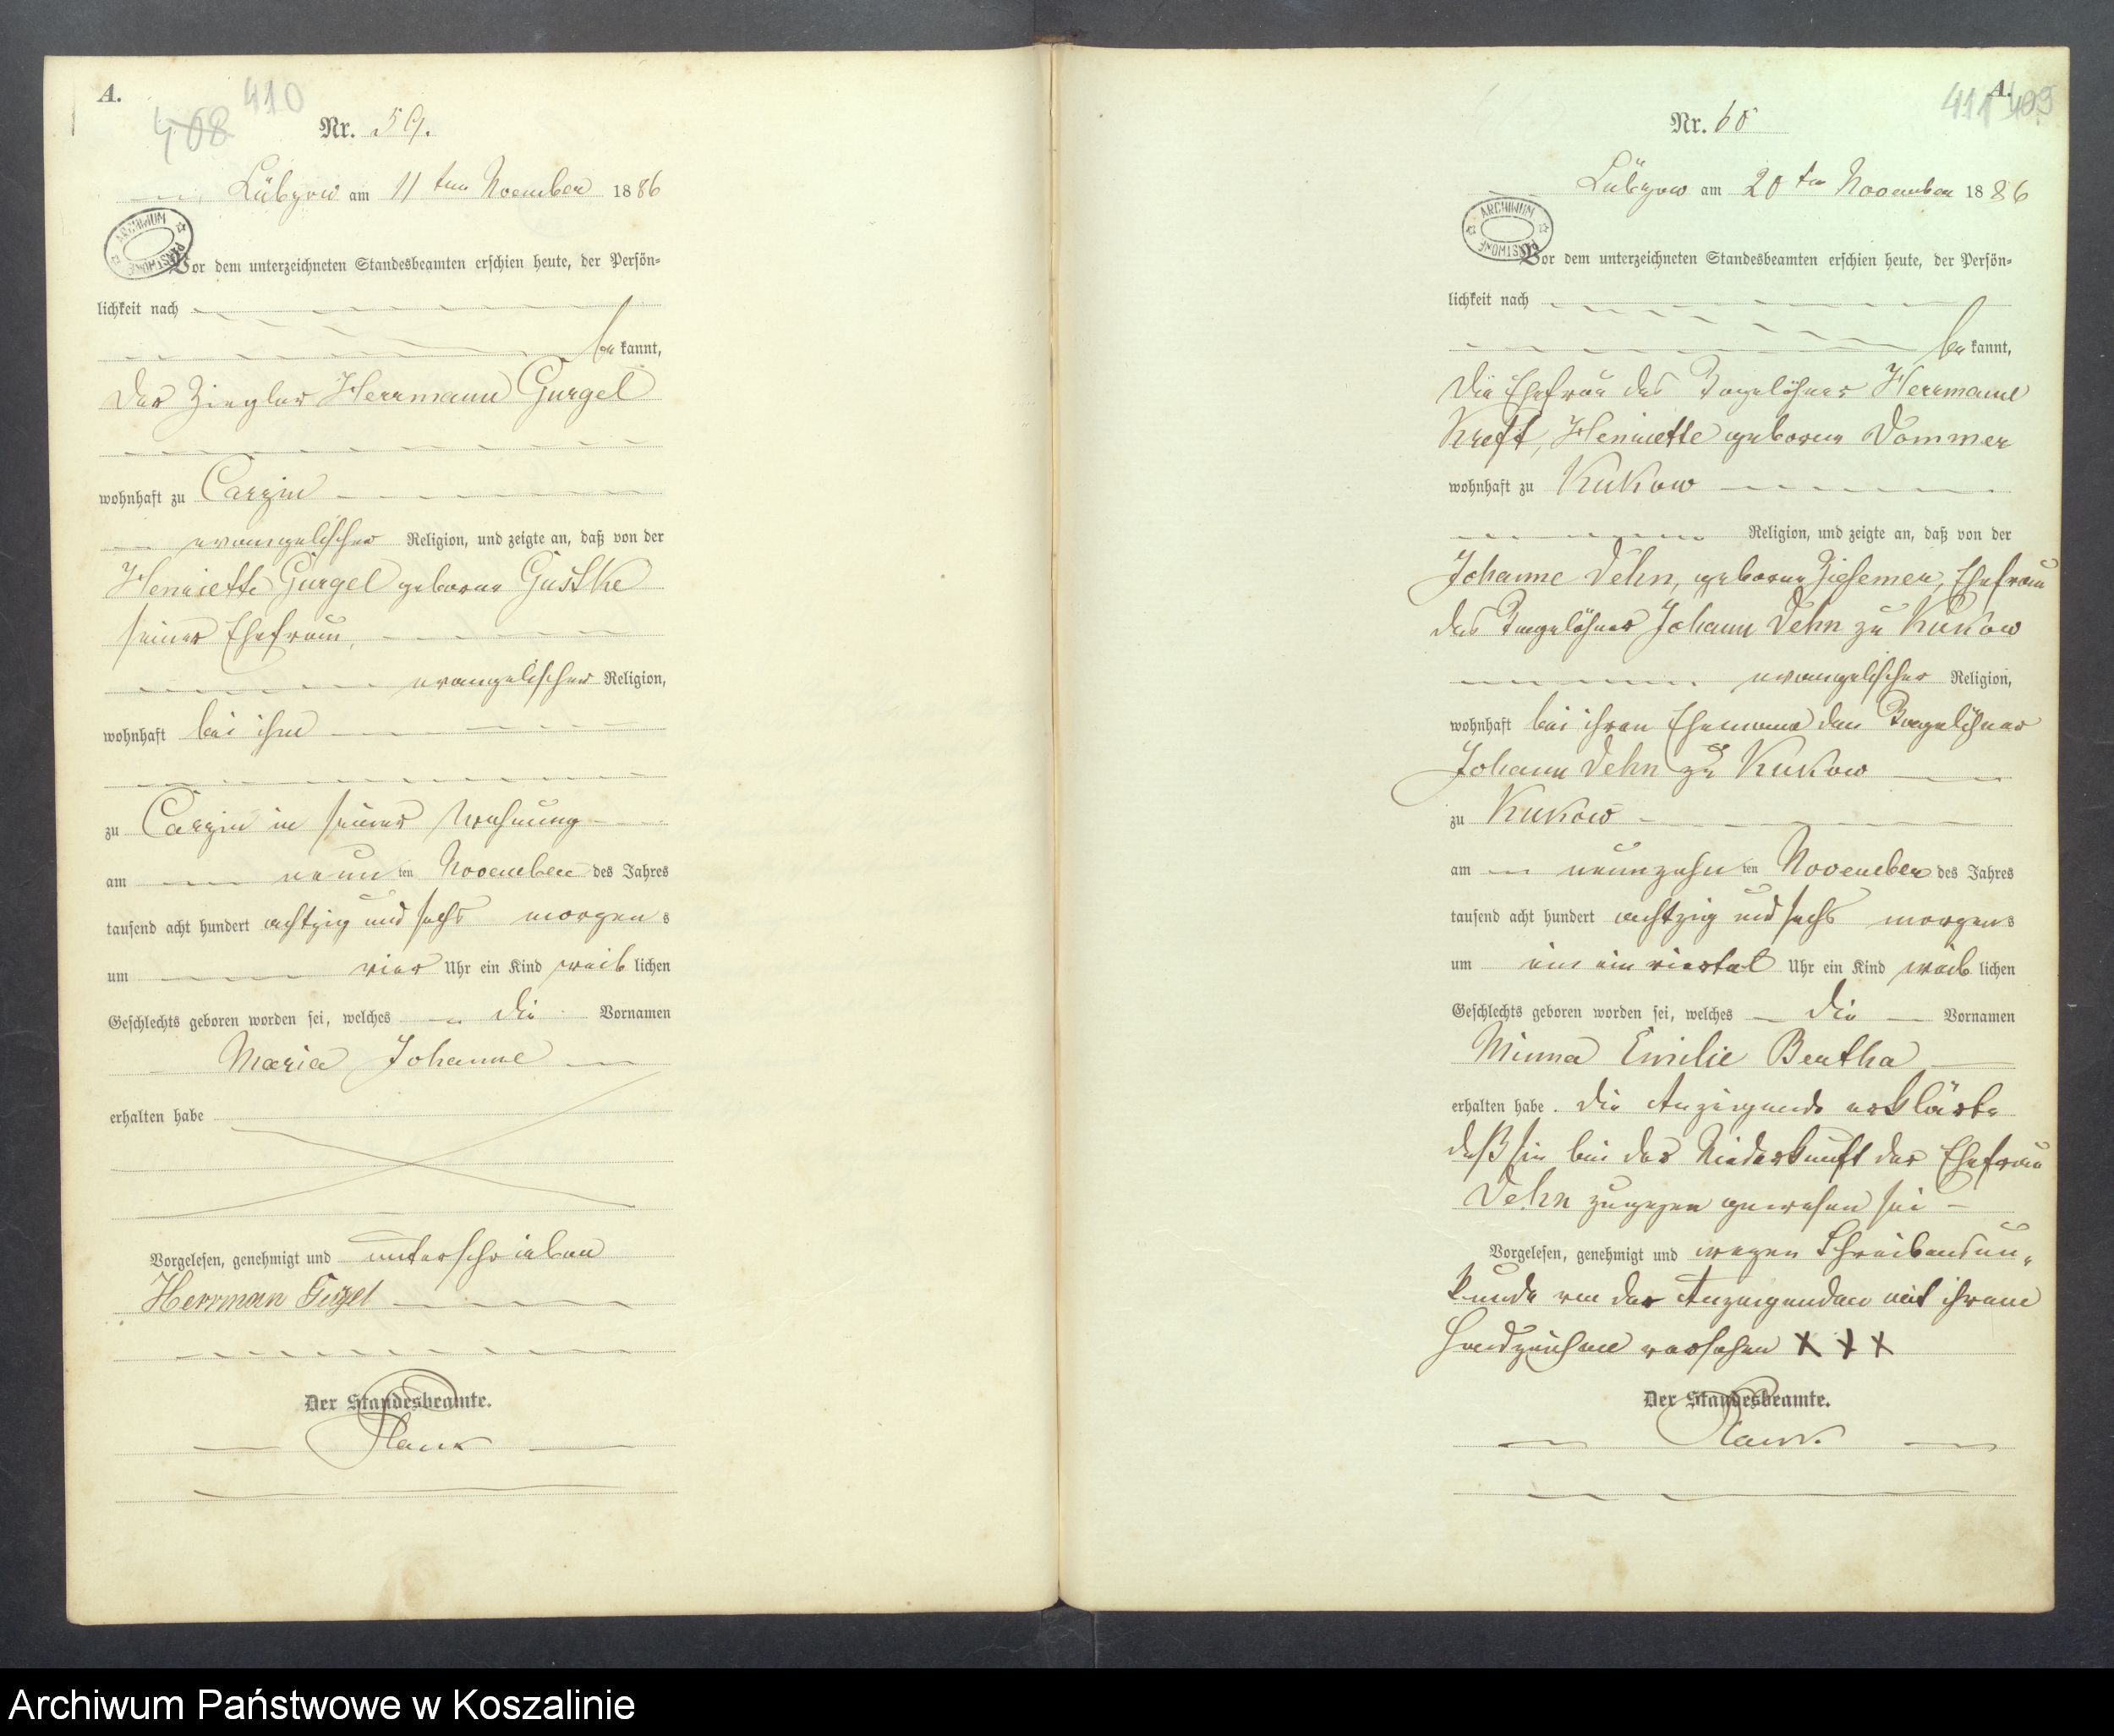 A.
408 410
Nr. 59.
Lübzow am 11 ten Noember 1886
ARCHIWUM PAŃSTWOWE
Vor dem unterzeichneten Standesbeamten erschien heute, der Persön-
lichkeit nach
be kannt,
der Ziegler Herrmann Gurgel
wohnhaft zu Carzin
evangelischer Religion, und zeigte an, daß von der
Henriette Gurgel geborne Gustke
seiner Ehefrau,
evangelischer Religion,
wohnhaft bei ihm
zu Carzin in seiner Wohnung
am neun ten November des Jahres
tausend acht hundert achtzig und sechs morgen s
um vier Uhr ein Kind weib lichen
Geschlechts geboren worden sei, welches die Vornamen
Maria Johanne
erhalten habe
Vorgelesen, genehmigt und unterschrieben
Herrman Gurgel
Der Standesbeamte.
Plank
A.
411 409
Nr. 60
Lübzow am 20 ten November 1886
ARCHIWUM PAŃSTWOWE
Vor dem unterzeichneten Standesbeamten erschien heute, der Persön-
lichkeit nach
be kannt,
die Ehefrau des Tagelöhner Herrmann
Kreft, Henriette geborne Dommer
wohnhaft zu Kukow
Religion, und zeigte an, daß von der
Johanne Dehn, geborne Ziesemer, Ehefrau
des Tagelöhner Johann Dehn zu Kukow
evangelischer Religion,
wohnhaft bei ihren Ehemann den Tagelöhner
Johann Dehn zu Kukow
zu Kukow
am neunzehn ten November des Jahres
tausend acht hundert achtzig und sechs morgens
um ein ein viertel Uhr ein Kind weib lichen
Geschlechts geboren worden sei, welches die Vornamen
Minna Emilie Bertha
erhalten habe. Die Anzeigende erklärte
daß sie bei der Niederkunft der Ehefrau
Dehn zugegen gewesen sei
Vorgelesen, genehmigt und wegen Schreibensun-
kunde von der Anzeigenden mit ihrem
Handzeichen versehen XXX
Der Standesbeamte.
Plank.
Archiwum Państwowe w Koszalinie